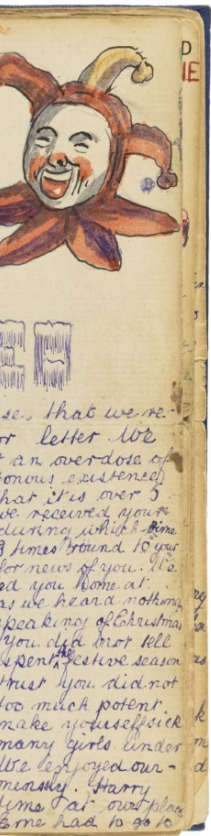 D
IE
E H
se. that we re-
or letter. We
t an overdose of
tonous existence
hat it is over 5
we received yours
during which time
3 times round to your
for news of you. It's
ad you home at.
as we heard nothing
speaking of Christmas
You did not tell
spent the festive season
trust you did not
too much potent.
make yourself sick
many girls under
We enjoyed our-
mensely. Harry
time at our place
Erne had to go to